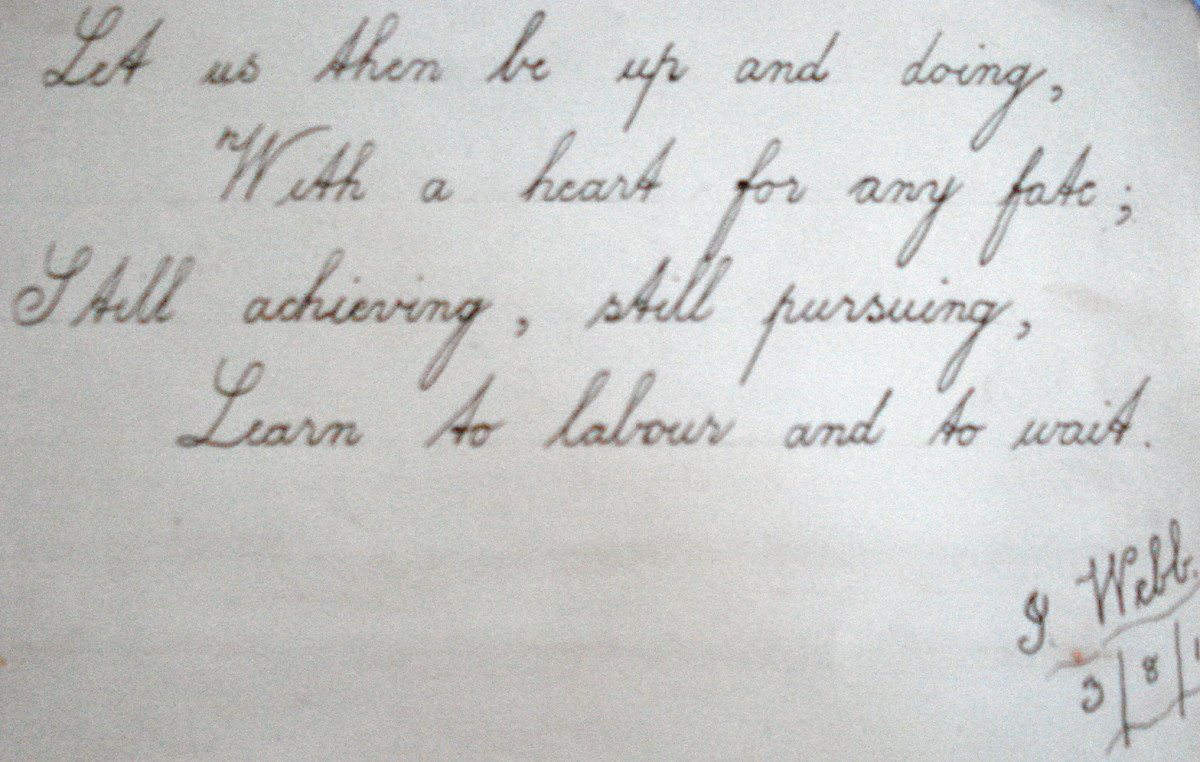 Let us then be up and doing,
With a heart for any fate;
Still achieving, still pursuing,
Learn to labour and to wait.
Webb.
3 | 8 |